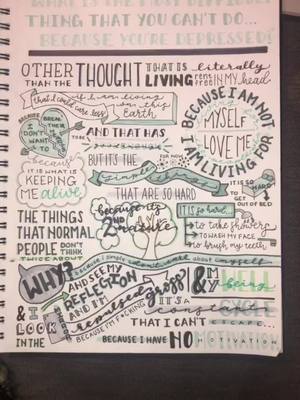 WHAT IS THE MOST DIFFICULT
THING THAT YOU CAN'T DO...
BECAUSE YOU'RE DEPRESSED?
OTHER THOUGHT THAT IS literally
THAN THE LIVING rent free IN MY head
that i could care less if i am living on this Earth
BECAUSE I AM NOT
I'M LIVING FOR
MYSELF
LOVE ME
BECAUSE
BREATHE
I DON'T
WANT TO
AND THAT HAS
TO BE
BUT ITS THE FOR NOW
simple things
because
IT IS WHAT IS
KEEPING
ME alive
THAT ARE SO HARD
IT IS SO
HARD
TO
GET OUT OF BED
THE THINGS
THAT NORMAL
PEOPLE DON'T
THINK
TWICE ABOUT
because its
2ND
nature
IT IS so hard
to take showers
TO WASH MY FACE
to brush my teeth
WHY?
because i simple about myself
AND SEE MY
REFLECTION
AND I'M
repulsed
gross?
BECAUSE I'M F*CKING
& I'M
& I
LOOK
IN THE
being
WELL
IT'S A
constant
CYCLE
THAT I CAN'T ESCAPE...
BECAUSE I HAVE NO MOTIVATION
MOTIVATION